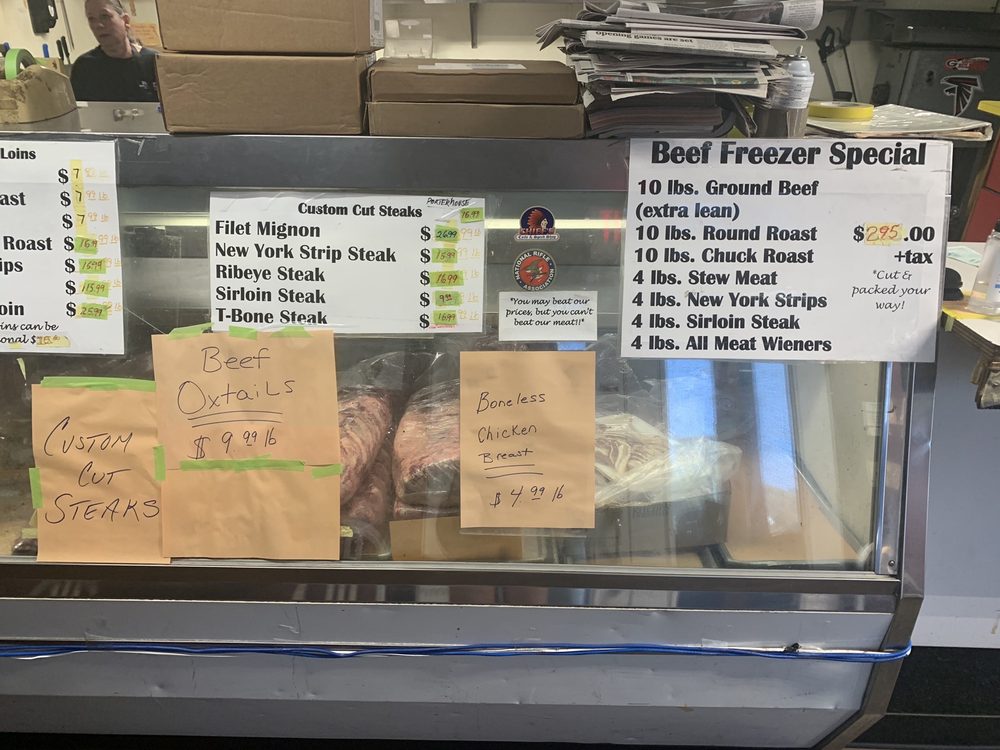 opening games are set
Loins
$ 7
ast $ 7
$ 7
Roast $ 16.99
ips $ 15.99
$ 15.99
oin $ 25.99
ins can be
onal $
Custom Cut Steaks
PORTERHOUSE
16.99
Filet Mignon $ 26.99
New York Strip Steak $ 15.99
Ribeye Steak $ 16.99
Sirloin Steak $ 9.99
T-Bone Steak $ 16.99
CHIEFS
NATIONAL RIFLE ASSOCIATION
"You may beat our
prices, but you can't
beat our meat!!"
Beef Freezer Special
10 lbs. Ground Beef
(extra lean)
10 lbs. Round Roast $295.00
10 lbs. Chuck Roast +tax
4 lbs. Stew Meat
4 lbs. New York Strips
4 lbs. Sirloin Steak
4 lbs. All Meat Wieners
*Cut &
packed your
way!
CUSTOM
CUT
STEAKS
Beef
OxtaiLs
$ 9.99 lb
Boneless
Chicken
Breast
$ 4.99 lb